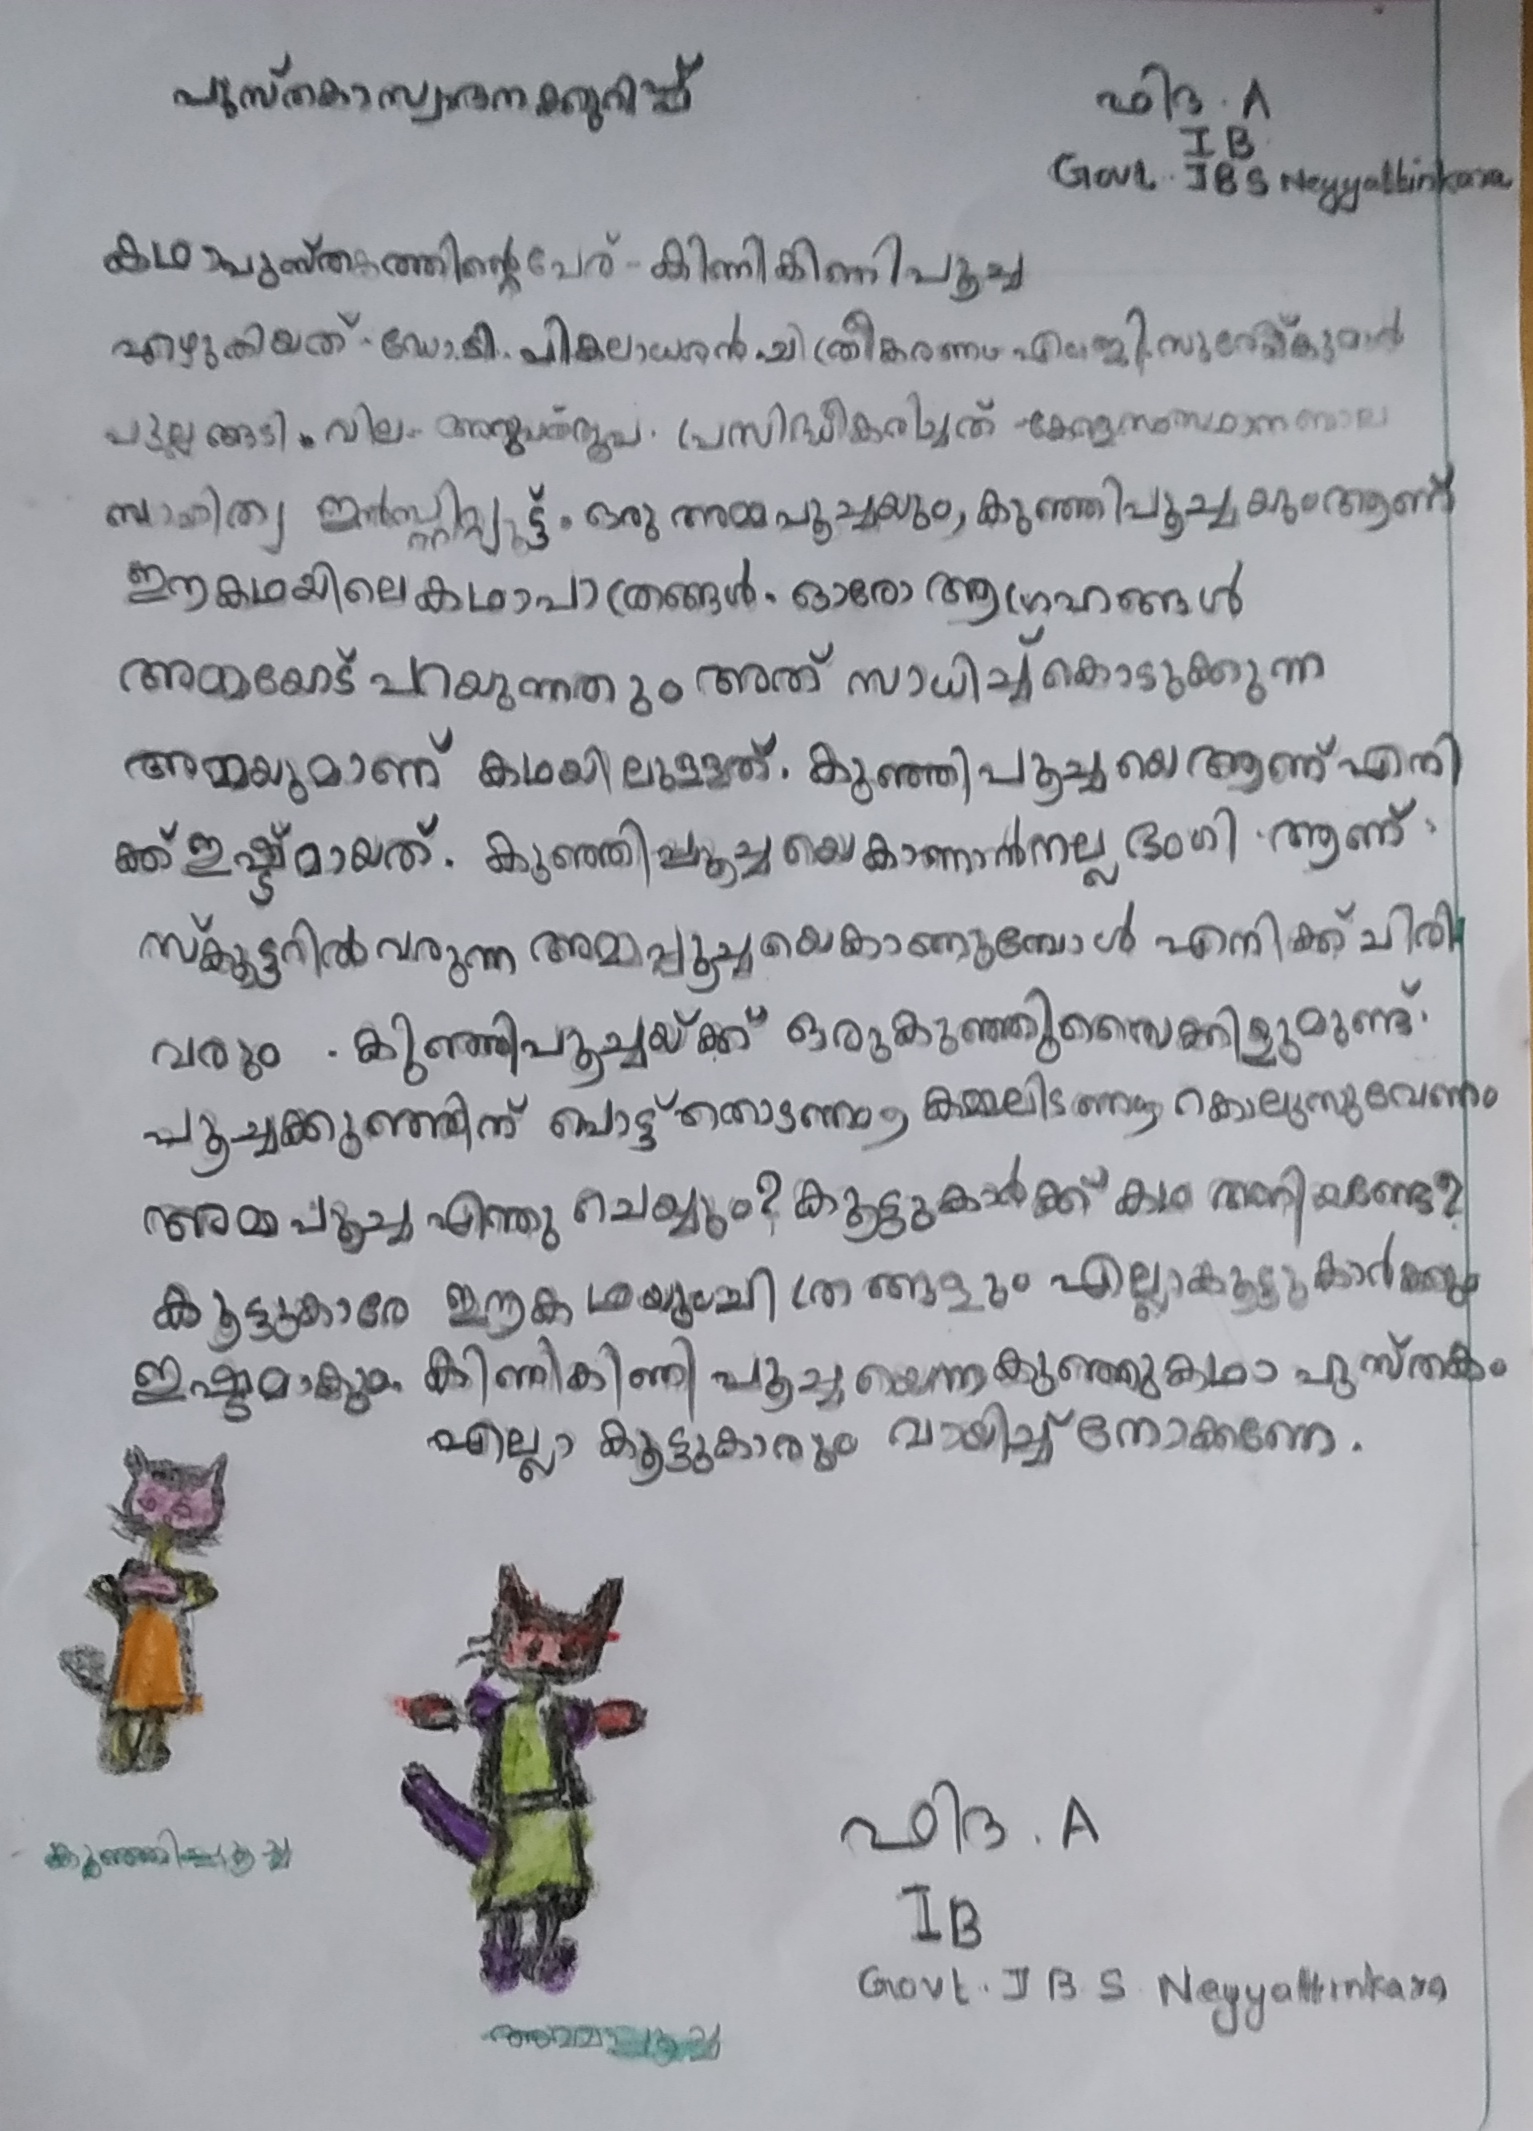 പുസ്തകാസ്വാദനക്കുറിപ്പ്
ഫിദ. A
I B
Govt. J B S Neyyattinkara
കഥാപുസ്തകത്തിന്റെ പേര് - കിന്നികിണ്ണി പൂച്ച
എഴുതിയത് - ഡോ.ടി. പി കലാധരൻ. ചിത്രീകരണം എം.ജി. സുരേഷ്കുമാർ
പുല്ലങ്ങടി. വില - രൂപ. പ്രസിദ്ധീകരിച്ചത് - കേരളസംസ്ഥാന ബാല
സാഹിത്യ ഇൻസ്റ്റിറ്റ്യൂട്ട്. ഒരു അമ്മപൂച്ചയും, കുഞ്ഞിപൂച്ചയും ആണ്
ഈ കഥയിലെ കഥാപാത്രങ്ങൾ. ഓരോ ആഗ്രഹങ്ങൾ
അമ്മയോട് പറയുന്നതും അത് സാധിച്ച് കൊടുക്കുന്ന
അമ്മയുമാണ് കഥയിലുള്ളത്. കുഞ്ഞിപൂച്ചയെ ആണ് എനി
ക്ക് ഇഷ്ട്ടമായത്. കുഞ്ഞിപ്പൂച്ചയെ കാണാൻ നല്ല ഭംഗി ആണ്.
സ്കൂട്ടറിൽ വരുന്ന അമ്മപ്പൂച്ചയെ കാണുമ്പോൾ എനിക്ക് ചിരി
വരും. കുഞ്ഞിപൂച്ചയ്ക്ക് ഒരു കുഞ്ഞു സൈക്കിളുമുണ്ട്.
പൂച്ചക്കുഞ്ഞിന് പൊട്ട് തൊടണം കമ്മലിടണം കൊലുസുവേണം
അമ്മപൂച്ച എന്തു ചെയ്യും? കൂട്ടുകാർക്ക് കഥ അറിയണ്ടേ?
കൂട്ടുകാരേ ഈ കഥയും ചിത്രങ്ങളും എല്ലാ കൂട്ടുകാർക്കും
ഇഷ്ടമാകും. കിണ്ണികിണ്ണി പൂച്ചയെന്ന കുഞ്ഞു കഥാ പുസ്തകം
എല്ലാ കൂട്ടുകാരും വായിച്ച് നോക്കണേ.
കുഞ്ഞിപ്പൂച്ച
അമ്മപ്പൂച്ച
ഫിദ. A
I B
Govt. J B S Neyyattinkara